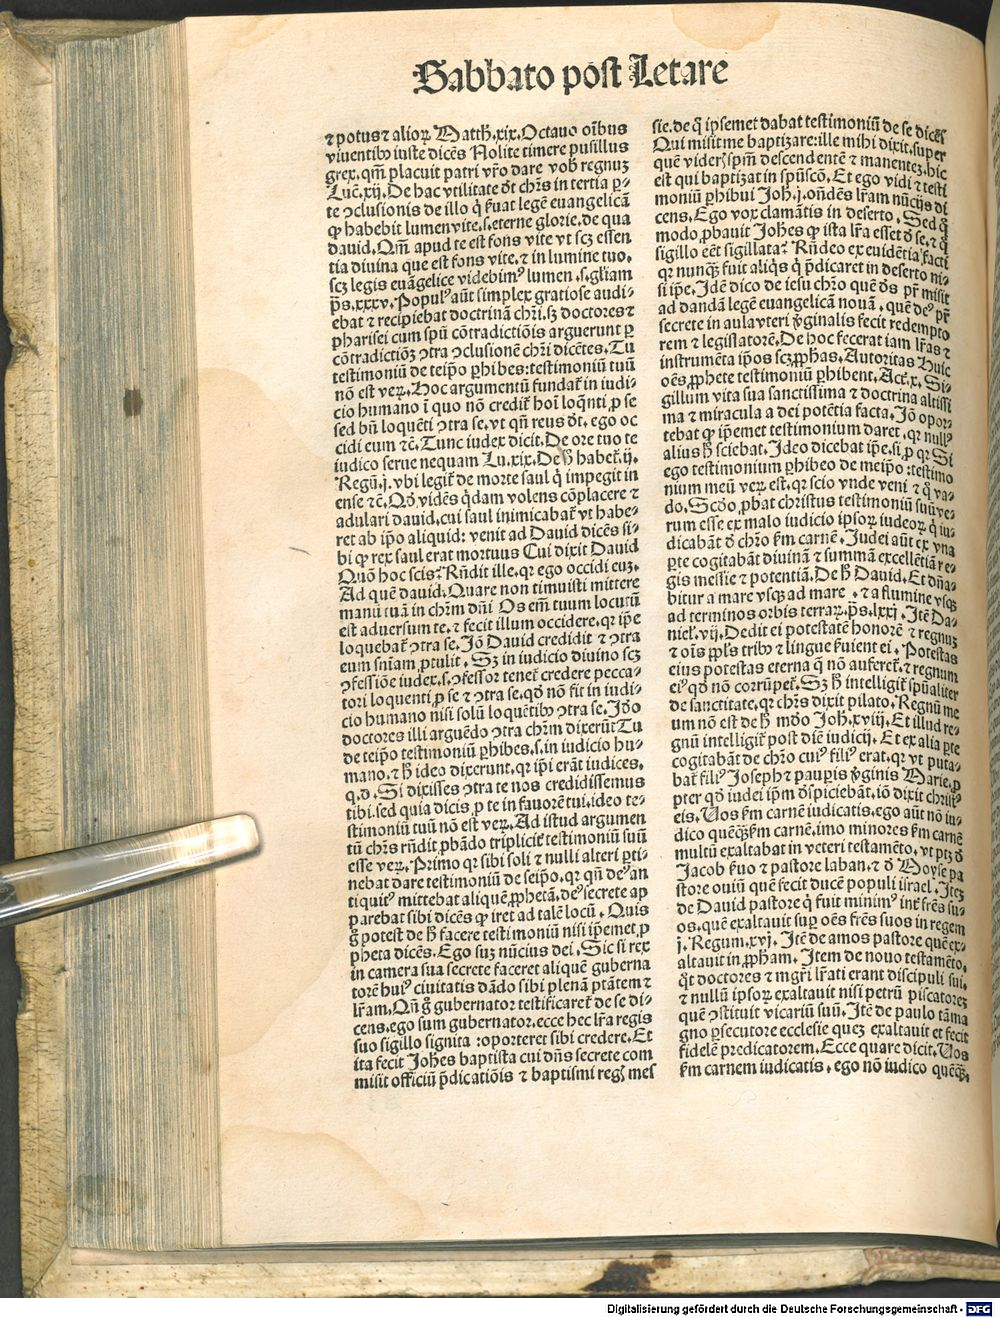 Sabbato post Letare
⁊ potus ⁊ alioꝝ Matth.xix. Octauo oībus
viuentibꝰ iuste dicēs Nolite timere pusillus
grex. qm̄ placuit patri vr̄o dare vob̄ regnuꝫ
Luc̄.xij. De hac vtilitate dt̄ chr̄s in tertia ꝑ-
te ꝯclusionis de illo q̇ ẜuat legē euangelicā
ꝙ habebit lumen vite.s.eterne glorie. de qua
dauid. Qm̄ apud te est fons vite vt scꝫ essen
tia diuina que est fons vite. ⁊ in lumine tuo.
scꝫ legis euāgelice videbimꝰ lumen .s.gl̄iam
p̄s.xxxv. Populꝰ aūt simplex gratiose audi-
ebat ⁊ recipiebat doctrinā chr̄i. sꝫ doctores ⁊
pharisei cum spū cōtradictiōis arguerunt ꝑ
cōtradictiōꝫ ꝯtra ꝯclusionē chr̄i dicētes. Tu
testimoniū de teip̄o ꝑhibes: testimoniū tuū
nō est veꝝ. Hoc argumentū fundat̄ in iudi-
cio humano ī quo nō credit̄ hoī loq̄nti ꝓ se
sed bn̄ loquēti ꝯtra se. vt qn̄ reus dt̄. ego oc
cidi eum ⁊c̄. Tunc iudex dicit. De ore tuo te
iudico serue nequam Lu.xix. De h̄ habet̄.ij.
Regū.j. vbi legit̄ de morte saul q̇ impegit in
ense ⁊c̄. Qd̄ vidēs q̇dam volens cōplacere ⁊
adulari dauid. cui saul inimicabat̄ vt habe-
ret ab ip̄o aliquid: venit ad Dauid dicēs si-
bi ꝙ rex saul erat mortuus Cui dixit Dauid
Quō hoc scis? Rn̄dit ille. qꝛ ego occidi euꝫ.
Ad quē dauid. Quare non timuisti mittere
manū tuā in chr̄m dn̄i Os em̄ tuum locutū
est aduersum te. ⁊ fecit illum occidere. qꝛ ip̄e
loquebat̄ ꝯtra se. Iō Dauid credidit ⁊ ꝯtra
eum sn̄iam ꝓtulit. Sꝫ in iudicio diuino scꝫ
ꝯfessiōe iudex.s.ꝯfessor tenet̄ credere pecca-
tori loquenti ꝓ se ⁊ ꝯtra se. qd̄ nō fit in iudi-
cio humano nisi solū loquētibꝰ ꝯtra se. Idō
doctores illi arguēdo ꝯtra chr̄m dixerūt Tu
de teip̄o testimoniū ꝑhibes.s.in iudicio hu-
mano. ⁊ h̄ ideo dixerunt. qꝛ ip̄i erāt iudices.
q.d. Si dixisses ꝯtra te nos credidissemus
tibi. sed quia dicis ꝓ te in fauorē tui. ideo te-
stimoniū tuū nō est veꝝ. Ad istud argumen
tū chr̄s rn̄dit ꝓbādo triplicit̄ testimoniū suū
esse veꝝ. Primo qꝛ sibi soli ⁊ nulli alteri ꝑti-
nebat dare testimoniū de seip̄o. qꝛ qn̄ deꝰ an
tiquitꝰ mittebat aliquē ꝓphetā. deꝰ secrete ap
parebat sibi dicēs ꝙ iret ad talē locū. Quis
g̊ potest de h̄ facere testimoniū nisi ip̄emet ꝓ
pheta dicēs. Ego suꝫ nūcius dei. Sic si rex
in camera sua secrete faceret aliquē guberna
torē huiꝰ ciuitatis dādo sibi plenā ptātem ⁊
lr̄am. Qn̄ g̊ gubernator testificaret̄ de se di-
cens. ego sum gubernator. ecce hec lr̄a regis
suo sigillo signita: oporteret sibi credere. Et
ita fecit Joh̄es baptista cui dn̄s secrete com
misit officiū p̄dicatiōis ⁊ baptismi regꝭ mes
sie. de q̊ ipsemet dabat testimoniū de se dicēs
Qui misit me baptizare: ille mihi dixit. super
quē viderꝭ spm̄ descendentē ⁊ manenteꝫ. hic
est qui baptizat in spūscō. Et ego vidi ⁊ testi
moniū ꝑhibui Joh̄.j. on̄dēs lr̄am nūcijs di
cens. Ego vox clamātis in deserto. Sed q̊
modo ꝓbauit Joh̄es ꝙ ista lr̄a esset d̄ se. ⁊ q̊
sigillo eēt sigillata? Rn̄deo ex euidētia facti
qꝛ nunq̄ꝫ fuit aliq̇s q̇ p̄dicaret in deserto ni-
si ip̄e. Idē dico de iesu chr̄o quē ds̄ pr̄ misit
ad dandā legē euangelicā nouā. quē deꝰ pr̄
secrete in aula vteri v̄ginalis fecit redempto
rem ⁊ legislatorē. De hoc fecerat iam lr̄as ⁊
instrumēta ip̄os scꝫ ꝓphas. Autoritas Huic
oēs ꝓphete testimoniū ꝑhibent. Act̄.x. Si-
gillum vita sua sanctissima ⁊ doctrina altissi
ma ⁊ miracula a dei potētia facta. Iō opor-
tebat ꝙ ip̄emet testimonium daret. qꝛ nullꝰ
alius h̄ sciebat. Ideo dicebat ip̄e. si ꝓ qꝛ Si
ego testimonium ꝑhibeo de meip̄o: testimo
nium meū veꝝ est. qꝛ scio vnde veni ⁊ q̊ va-
do. Scdo ꝓbat christus testimoniū suū ve-
rum esse ex malo iudicio ipsoꝝ iudeoꝝ q̇ iu-
dicabāt d̄ chr̄o ẜm carnē. Judei aūt ex vna
ꝑte cogitabāt diuinā ⁊ summā excellētiā re-
gis messie ⁊ potentiā. De h̄ Dauid. Et dn̄a-
bitur a mare vsqꝫ ad mare. ⁊ a flumine vsqꝫ
ad terminos orbis terraꝝ. p̄s.lxxj. Itē Da-
niel̄.vij. Dedit ei potestatē honorē ⁊ regnuꝫ
⁊ oīs ppl̄s tribꝰ ⁊ lingue ẜuient ei. Potestas
eius potestas eterna q̄ nō auferet̄. ⁊ regnum
eiꝰ qd̄ nō corrūpet̄. Sꝫ h̄ intelligit̄ spūaliter
de sanctitate. qꝛ chr̄s dixit pilato. Regnū me
um nō est de h̄ mūdo Joh̄.xviij. Et illud re-
gnū intelligit̄ post diē iudicij. Et ex alia ꝑte
cogitabāt de chr̄o cuiꝰ filiꝰ erat. qꝛ vt puta-
bat̄ filiꝰ Joseph ⁊ pauꝑis v̄ginis Marie. ꝓ
pter qd̄ iudei ip̄m dispiciebāt. iō dixit christꝰ
eis. Uos ẜm carnē iudicatis. ego aūt nō iu-
dico quēqꝫ ẜm carnē. imo minores ẜm carnē
multū exaltabat in veteri testamēto. vt ptꝫ d̄
Jacob ẜuo ⁊ pastore laban. ⁊ d̄ Moyse pa
store ouiū quē fecit ducē populi israel. Iteꝫ
de Dauid pastore q̇ fuit minimꝰ int̄ frēs su-
os. quē exaltauit suꝑ oēs frēs suos in regem
j. Regum.xvj. Itē de amos pastore quē ex-
altauit in ꝓpham. Item de nouo testamēto.
q̊t doctores ⁊ mgr̄i lr̄ati erant discipuli sui.
⁊ nullū ipsoꝝ exaltauit nisi petrū piscatoreꝫ
quē ꝯstituit vicariū suū. Itē de paulo tāma
gno ꝑsecutore ecclesie queꝫ exaltauit et fecit
fidelē predicatorem. Ecce quare dicit. Uos
ẜm carnem iudicatis. ego nō iudico quēqꝫ.
Digitalisierung gefördert durch die Deutsche Forschungsgemeinschaft - DFG